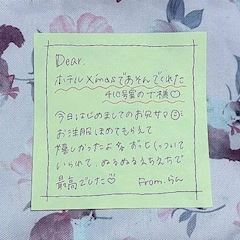 Dear.
ホテルXmasであそんでくれた
410号室の丁様☺
今日はじめましてのお兄サマ☺
お洋服ほめてもらえて
嬉しかったよ
ずっとくっついて
いられて、ぬるぬるえちえちで
最高でした♡ From.らん